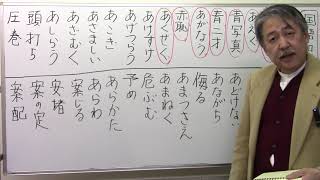 国語
青写真
青二才
あがなう
赤恥
あくせく
あけすけ
あげつらう
あこぎ
あさましい
あざむく
あしらう
頭打ち
圧巻
あどけない
あながち
侮る
あまつさえ
あまねく
危ぶむ
予め
あらかた
あらわ
案じる
安堵
案の定
案配